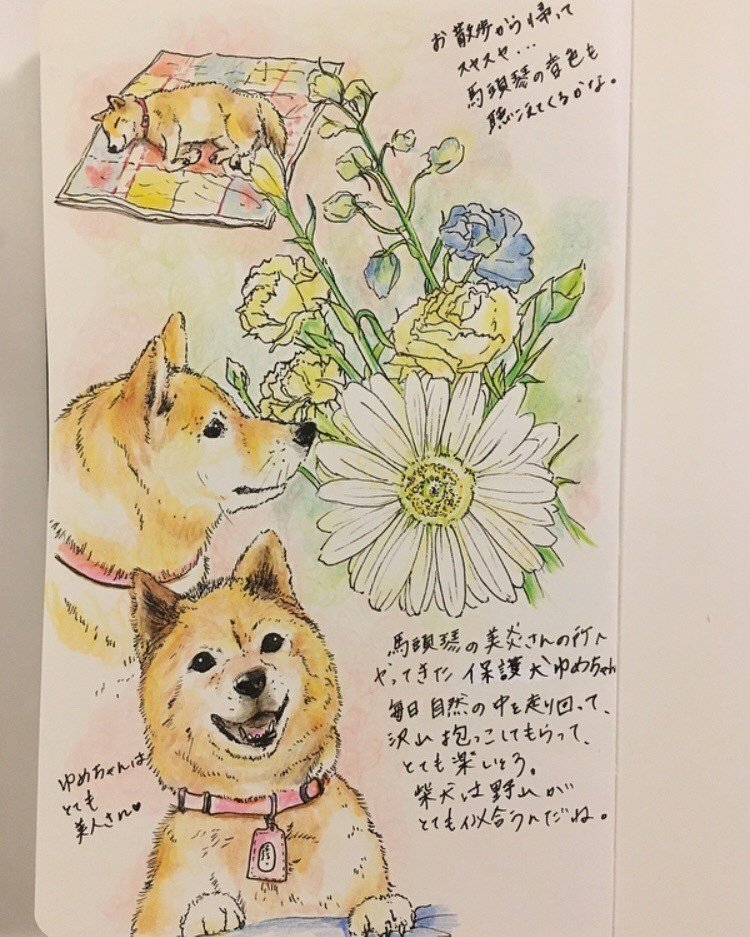 お散歩から帰って
スヤスヤ・・・
馬頭琴の音色も
聴こえてくるかな。
馬頭琴の美炎さんの所へ
やってきた 保護犬ゆめちゃん
毎日自然の中を走り回って、
沢山抱っこしてもらって、
とても楽しそう。
柴犬は野山が
とても似合うんだね。
ゆめちゃんは
とても
美人さん♥